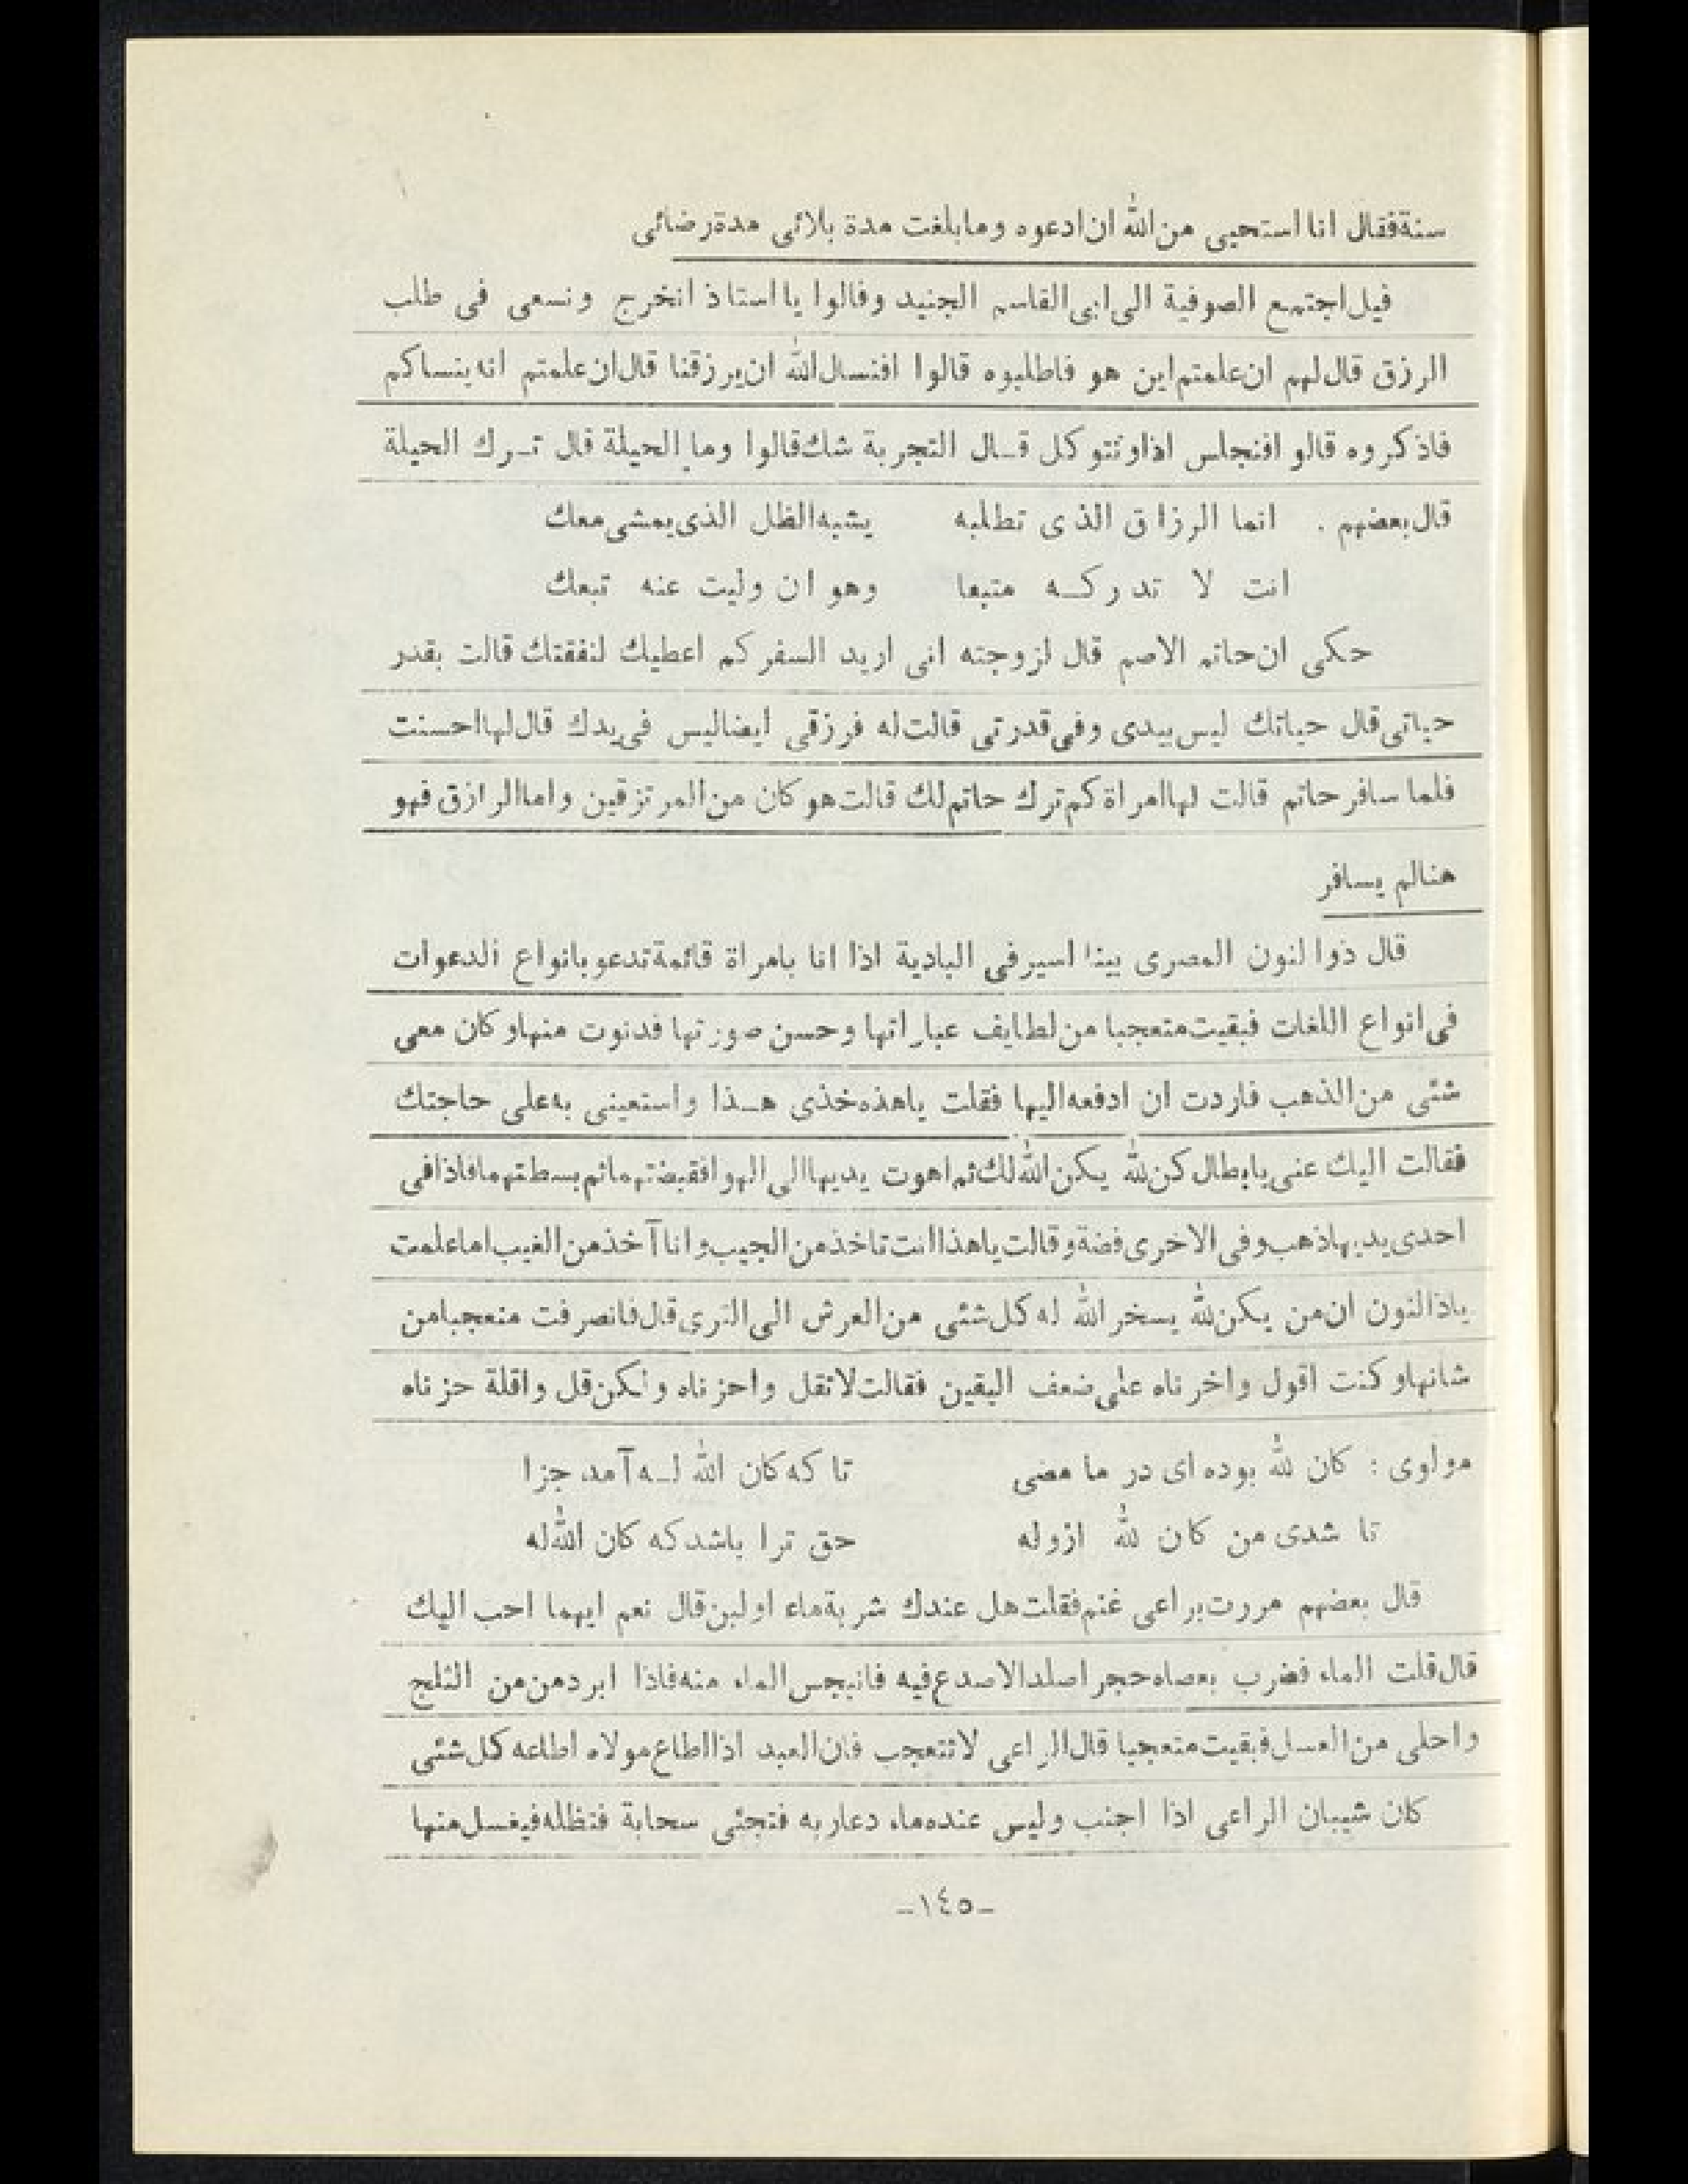 سنة فقال انا استحیی من الله ان ادعوه وما بلغت مدة بلائی مدة رضائی
قیل اجتمع الصوفیة الی ابی القاسم الجنید وقالوا یا استاذ انخرج ونسعی فی طلب
الرزق قال لهم ان علمتم این هو فاطلبوه قالوا افنسال الله ان یرزقنا قال ان علمتم انه ینساکم
فاذکروه قالو افنجلس اذا ونتوکل قـال التجربة شك قالوا وما الحیلة قال تـرك الحیلة
قال بعضهم . انما الرزاق الذی تطلبه یشبه الظل الذی یمشی معك
انت لا تدرکـه متبعا وهو ان ولیت عنه تبعك
حکی ان حاتم الاصم قال لزوجته انی ارید السفر کم اعطیك لنفقتك قالت بقدر
حیاتی قال حیاتك لیس بیدی وفی قدرتی قالت له فرزقی ایضا لیس فی یدك قال لها احسنت
فلما سافر حاتم قالت لها امراة کم ترك حاتم لك قالت هو کان من المرتزقین واما الرازق فهو
هنالم یسافر
قال ذوالنون المصری بینا اسیر فی البادیة اذا انا بامراة قائمة تدعو بانواع الدعوات
فی انواع اللغات فبقیت متعجبا من لطایف عباراتها وحسن صورتها فدنوت منها وکان معی
شئی من الذهب فاردت ان ادفعه الیها فقلت یاهذه خذی هـذا واستعینی به علی حاجتك
فقالت الیك عنی یا بطال کن لله یکن الله لك ثم اهوت یدیها الی الهوا فقبضتهما ثم بسطتهما فاذا فی
احدی یدیها ذهب وفی الاخری فضة وقالت یاهذا انت تاخذ من الجیب وانا آخذ من الغیب اما علمت
یاذالنون ان من یکن لله یسخر الله له کل شئی من العرش الی الثری قال فانصرفت متعجبا من
شانها وکنت اقول واخرناه علی ضعف الیقین فقالت لا تقل واحزناه ولکن قل واقلة حزناه
مولوی : کان لله بوده ای در ما مضی تا که کان الله لـه آمد جزا
تا شدی من کان لله ازوله حق ترا باشد که کان الله له
قال بعضهم مررت براعی غنم فقلت هل عندك شربة ماء او لبن قال نعم ایهما احب الیك
قال قلت الماء فضرب بعصاه حجر اصلدا لاصدع فیه فانبجس الماء منه فاذا ابرد من من الثلج
واحلی من العسل فبقیت متعجبا قال الراعی لا تتعجب فان العبد اذا اطاع مولاه اطاعه کل شئی
کان شیبان الراعی اذا اجنب ولیس عنده ماء دعا ربه فتجئی سحابة فتظله فیغسل منها
-١٤٥-